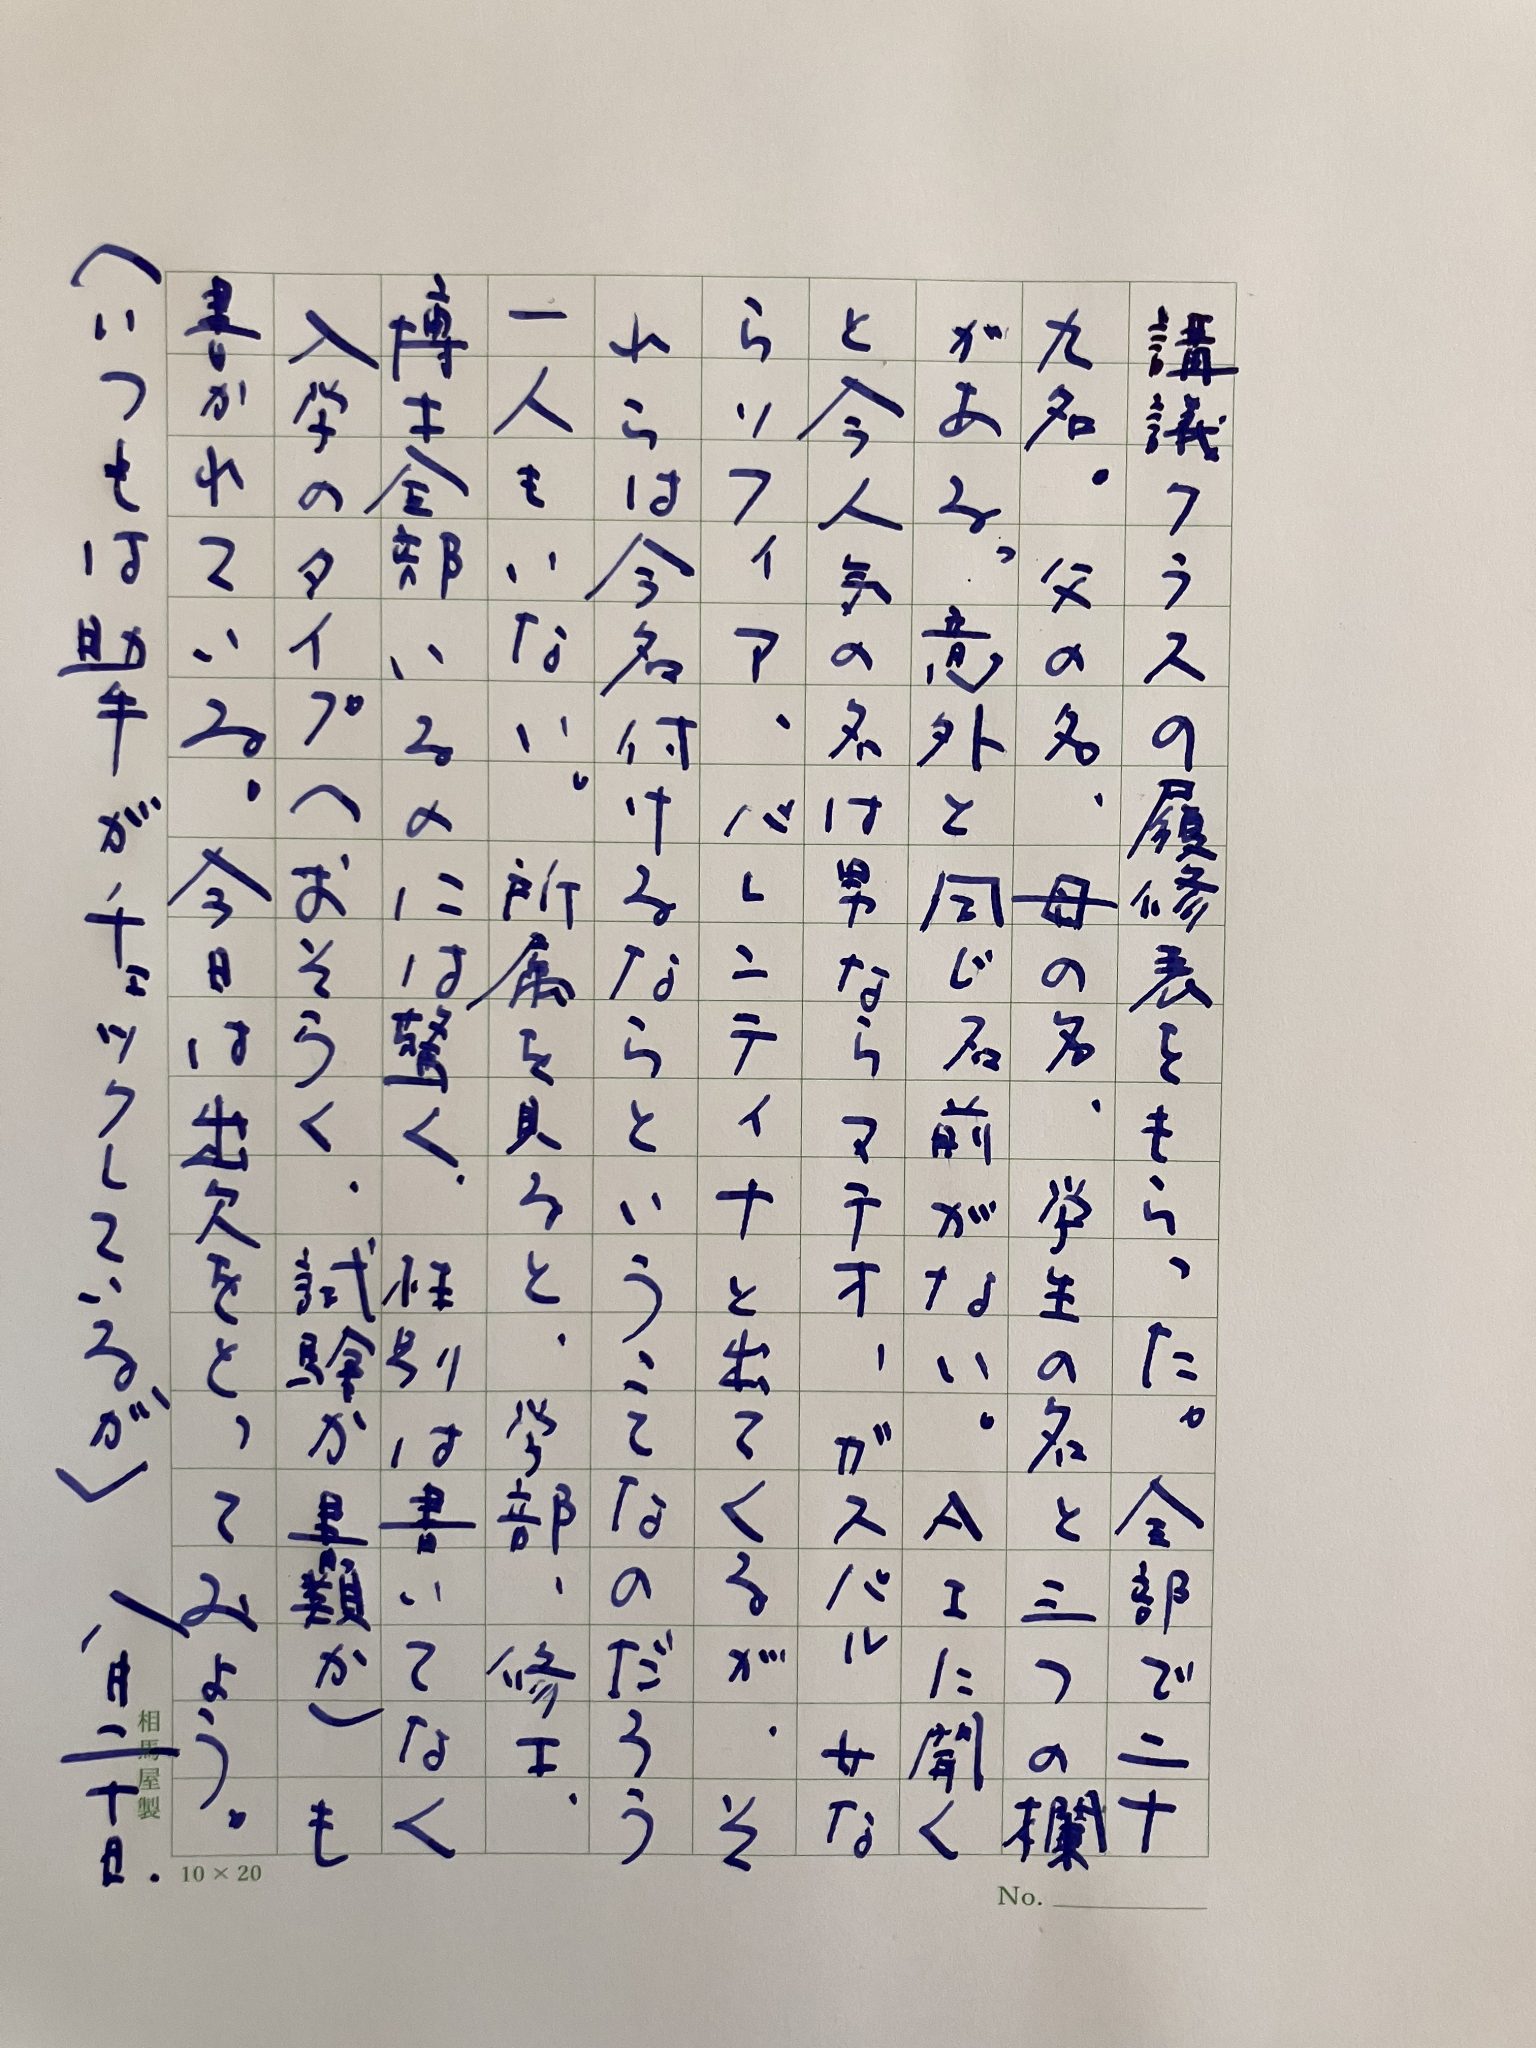 講議クラスの履修表をもらった。全部で二十
九名。父の名、母の名、学生の名と三つの欄
がある。意外と同じ名前がない。AIに聞く
と今人気の名は男ならマテオ、ガスバル女な
らソフィア、バレンティナと出てくるが、そ
れらは今名付けるならということなのだろう
一人もいない。所属を見ると、学部、修士、
博士全部いるのには驚く。性別は書いてなく
入学のタイプ（おそらく、試験か書類か）も
書かれている。今日は出欠をとってみよう。
（いつもは助手がチェックしているが） 八月二十日.
相馬屋製
10×20
No.